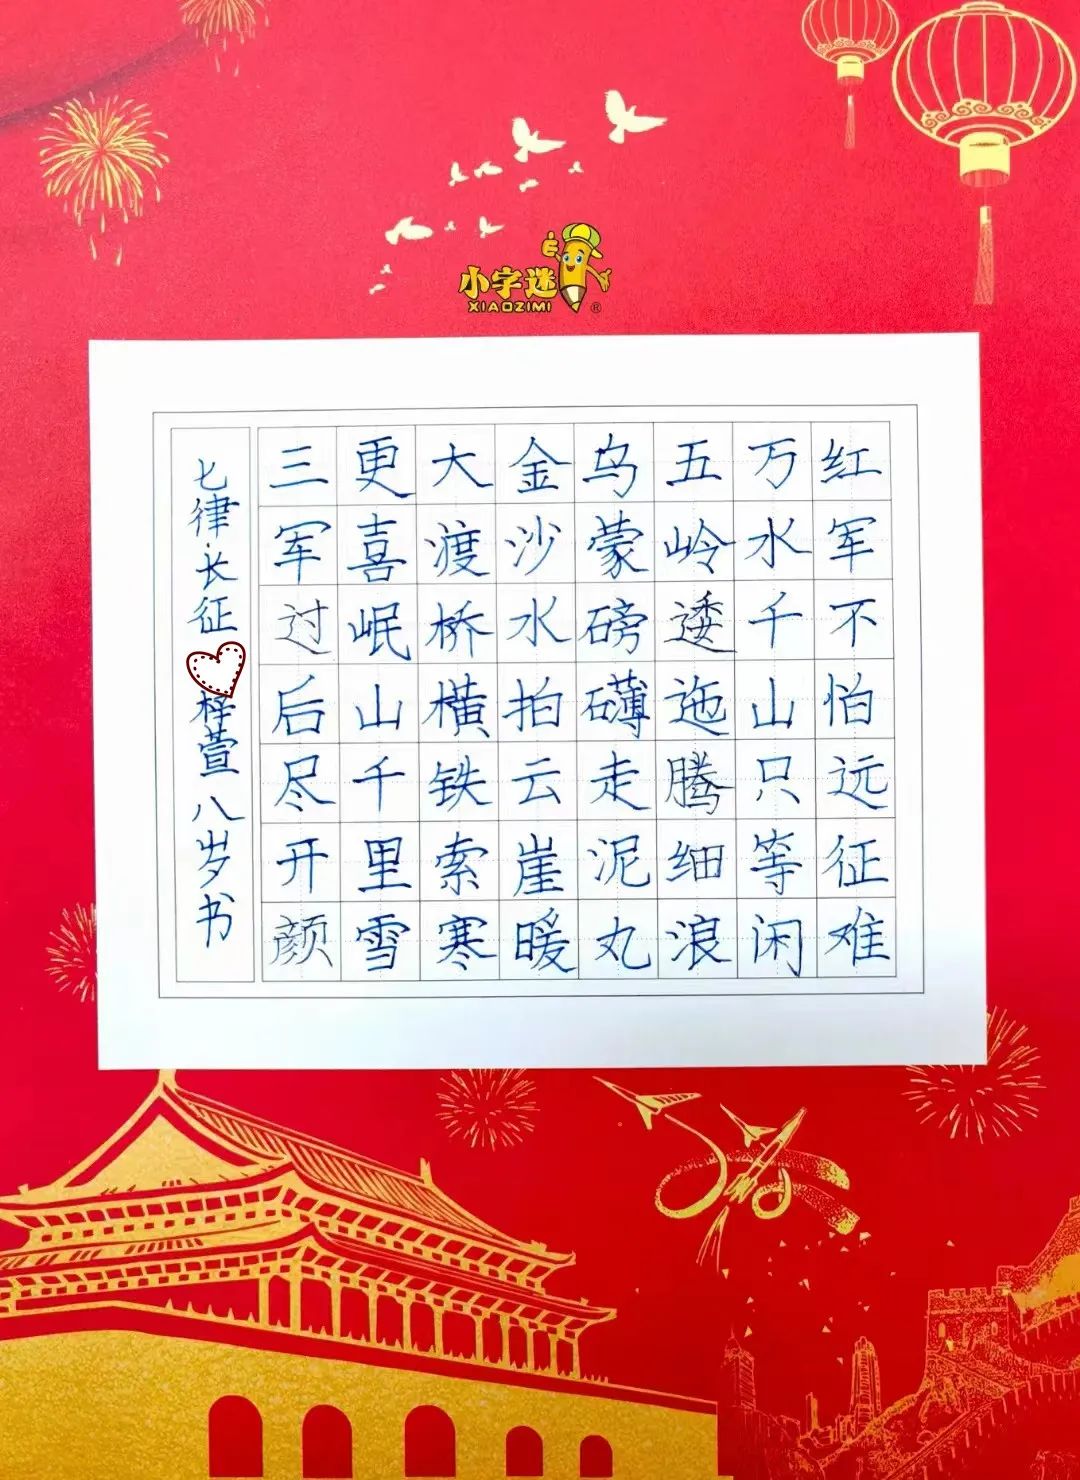 小字迷
XIAOZIMI
®
红军不怕远征难
万水千山只等闲
五岭逶迤腾细浪
乌蒙磅礴走泥丸
金沙水拍云崖暖
大渡桥横铁索寒
更喜岷山千里雪
三军过后尽开颜
七律·长征 梓萱 八岁书